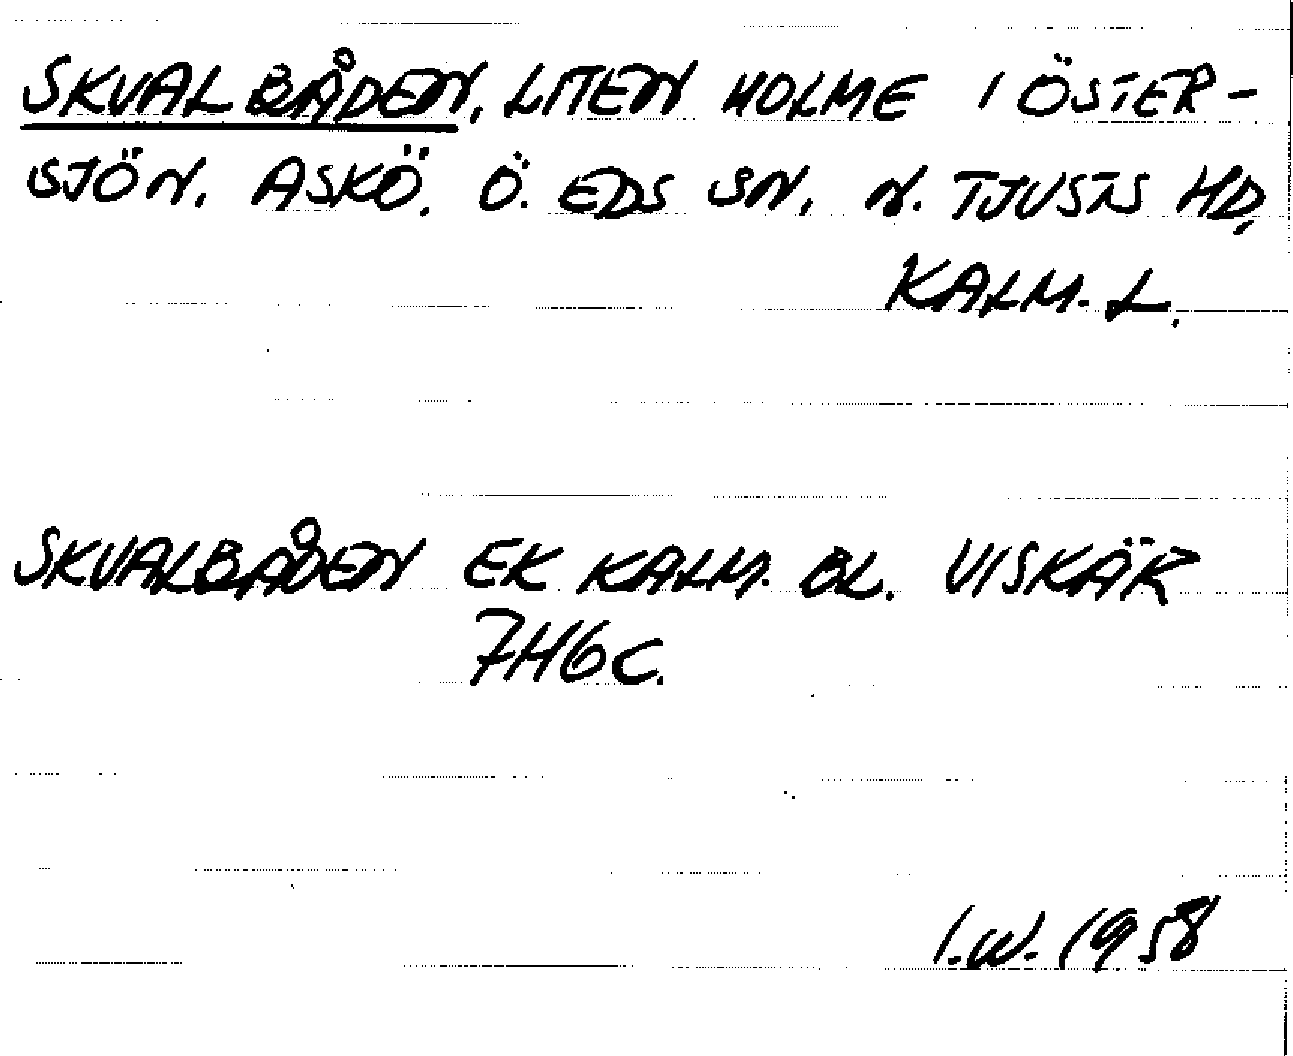 SKVALBÅDEN, LITEN HOLME I ÖSTER-
SJÖN. ASKÖ. Ö. EDS SN, N. TJUSTS HD,
KALM. L.
SKVALBÅDEN EK KALM. BL. VISKÄR
7H6C.
I.W. 1958